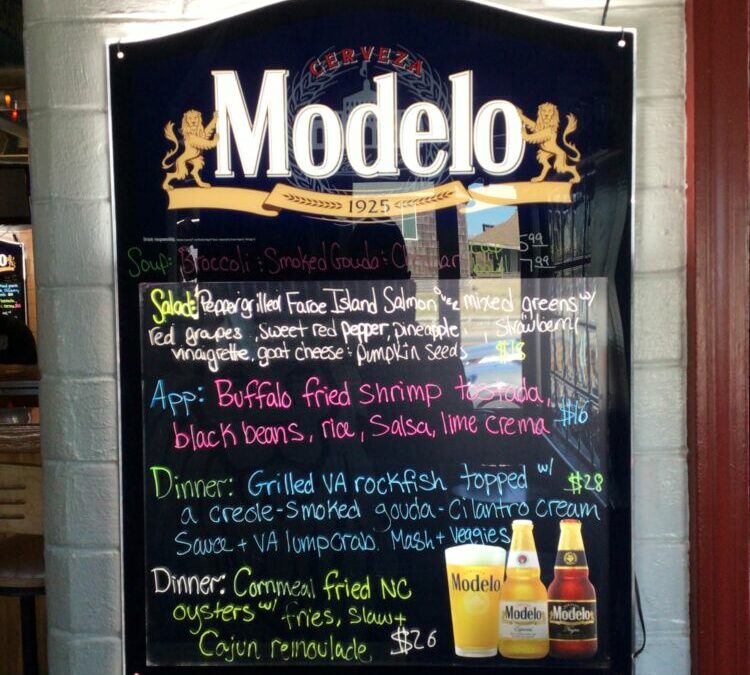 CERVEZA
Modelo
1925
Drink responsibly.
Soup: Broccoli : Smoked Gouda : Cheddar 5.99
7.99
Salad: Pepper grilled Faroe Island Salmon over mixed greens w/
red grapes, sweet red pepper, pineapple, strawberry
vinaigrette, goat cheese : pumpkin seeds $18
App: Buffalo fried shrimp tostada, $16
black beans, rice, Salsa, lime crema
Dinner: Grilled VA rockfish topped w/ $28
a creole-smoked gouda-Cilantro cream
Sauce + VA lump crab. Mash + Veggies
Dinner: Cornmeal fried NC
oysters w/ fries, slaw +
Cajun remoulade $26
Modelo
Modelo
Especial
Modelo
Negra